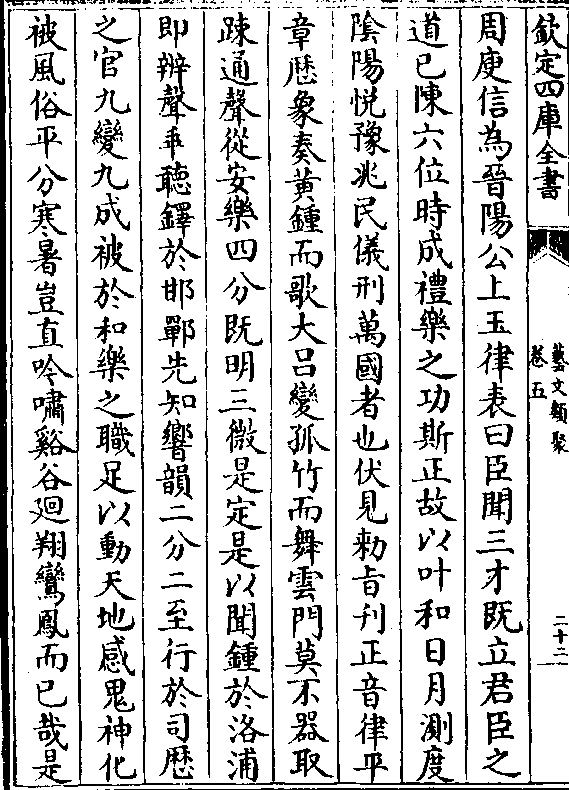 欽定四庫全書
藝文類聚
卷五
二十二
周庾信為晉陽公上玉律表曰臣聞三才既立君臣之
道已陳六位時成禮樂之功斯正故以叶和日月測度
陰陽悅豫兆民儀刑萬國者也伏見勑旨刋正音律平
章歴象奏黃鍾而歌大呂變孤竹而舞雲門莫不器取
踈通聲從安樂四分既明三微是定是以聞鍾於洛浦
即辨聲乖聽鐸於邯鄲先知響韻二分二至行於司歴
之官九變九成被於和樂之職足以動天地感鬼神化
被風俗平分寒暑豈直吟嘯谿谷廻翔鸞鳳而已哉是